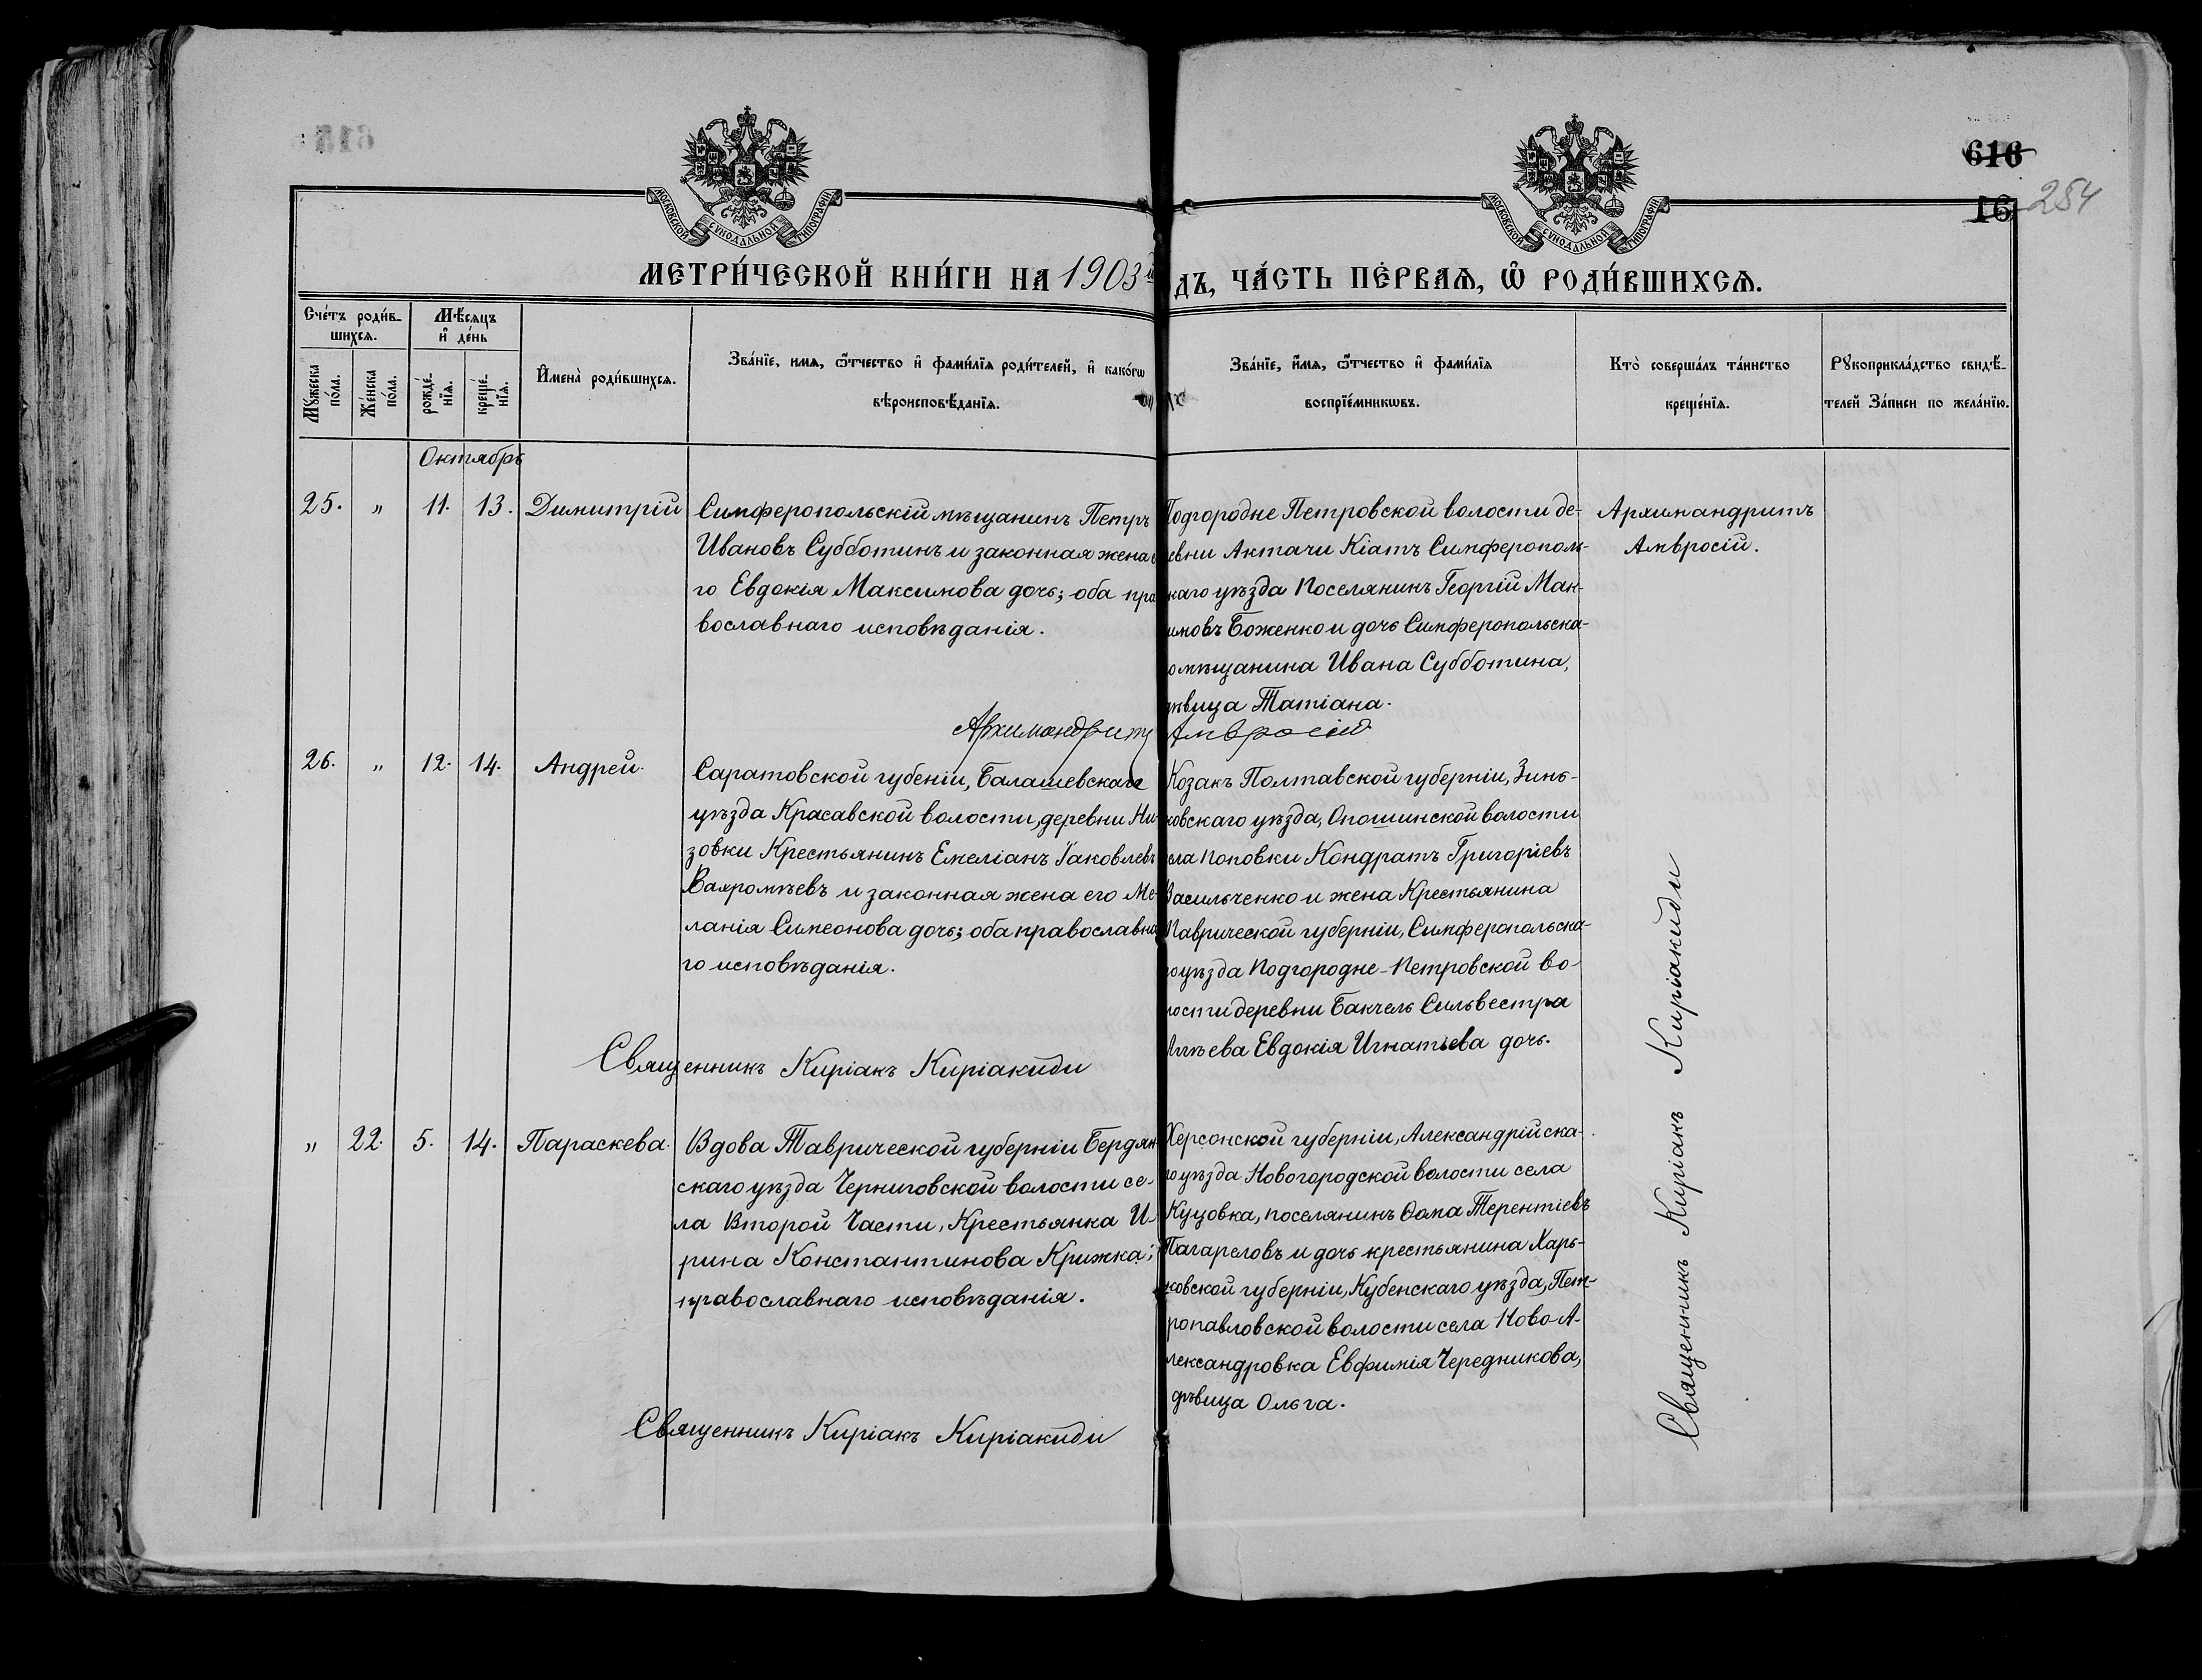 616
16 254
МОСКОВСКОЙ СѴНОДАЛЬНОЙ ТИПОГРАФІИ
МОСКОВСКОЙ СѴНОДАЛЬНОЙ ТИПОГРАФІИ
МЕТРИ́ЧЕСКОЙ КНИ́ГИ НА 1903й дъ, ЧА́СТЬ ПЕ́РВАѦ, Ѡ҆ РОДИ́ВШИХСѦ.
Сче́тъ роди́в-
шихсѧ.
Мѣ́сѧцъ
и҆ де́нь
Мꙋ́жеска по́ла.
Же́нска по́ла.
рожде́-
нїѧ.
креще́-
нїѧ.
И҆мена̀ роди́вшихсѧ.
Зва́нїе, имѧ, ѻ҆́тчество и҆ фами́лїѧ роди́телей, и҆ како́гѡ
вѣроисповѣ́данїѧ.
Зва́нїе, и҆́мѧ, ѻ҆́тчество и҆ фами́лїѧ
воспрїе́мникѡвъ.
Кто̀ соверша́лъ та́инство
креще́нїѧ.
Рꙋкоприкла́дство свидѣ́-
телей За́писи по жела́нїю.
Октябрь
25. „ 11. 13. Димитрій
Симферопольскій мѣщанинъ Петръ
Ивановъ Субботинъ и законная жена е
го Евдокія Максимова дочь; оба пра
вославнаго исповѣданія.
Подгородне Петровской волости де-
евни Актачи Кіатъ Симферополь-
наго уѣзда Поселянинъ Георгій Мак-
имовъ Боженко и дочь Симферопольска-
о мѣщанина Ивана Субботина,
ѣвица Татіана.
Архимандритъ
Амвросій.
Архимандритъ Амвросій
26. „ 12. 14. Андрей.
Саратовской губеніи, Балашевскаго
уѣзда Красавской волости, деревни Ни-
зовки Крестьянинъ Емеліанъ Іаковлевъ
Вахромѣевъ и законная жена его Ме-
ланія Симеонова дочь; оба православна
го исповѣданія.
Козакъ Полтавской губерніи, Зинь-
ковскаго уѣзда, Опошинской волости
ела Поповки Кондратъ Григоріевъ
Васильченко и жена Крестьянина
Таврической губерніи, Симферопольска-
го уѣзда Подгородне-Петровской во-
лости деревни Бакчель Сильвестра
Евдокія Игнатьева дочь.
Священникъ Киріакъ Киріакиди
„ 22. 5. 14. Параскева.
Вдова Таврической губерніи Бердян
скаго уѣзда Черниговской волости се-
ла Второй Части, Крестьянка И-
рина Константинова Крижка;
православнаго исповѣданія.
Херсонской губерніи, Александрійска-
го уѣзда Новогородской волости села
Куцовка, поселянинъ Ѳома Терентіевъ
Тагареловъ и дочь крестьянина Харь-
ковской губерніи, Кубенскаго уѣзда, Пет-
ропавловской волости села Ново-А-
лександровка Евфимія Чередникова,
дѣвица Ольга.
Священникъ Киріакъ Киріакиди
Священникъ Киріакъ Киріакиди